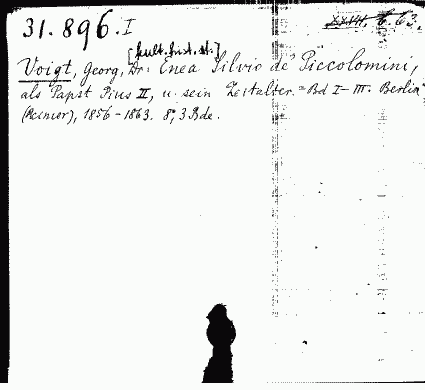 31.896.I
XXIII. 6. 63.
[kult. hist. st.]
Voigt, Georg, Dr. Enea Silvio de' Piccolomini,
als Papst Pius II, u. sein Zeitalter. = Bd I–III. Berlin
(Reimer), 1856–1863. 8°, 3 Bde.